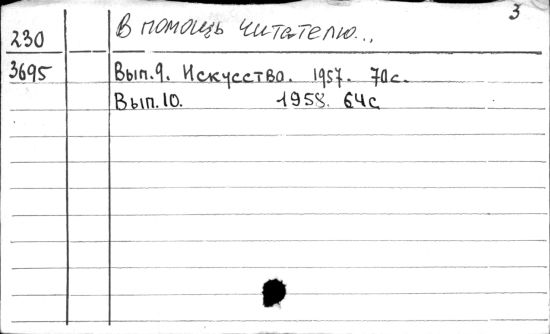 3
230 В помощь читателю...
3695 Вып.9. Искусство. 1957. 70с.
Вып.10. 1958. 64с